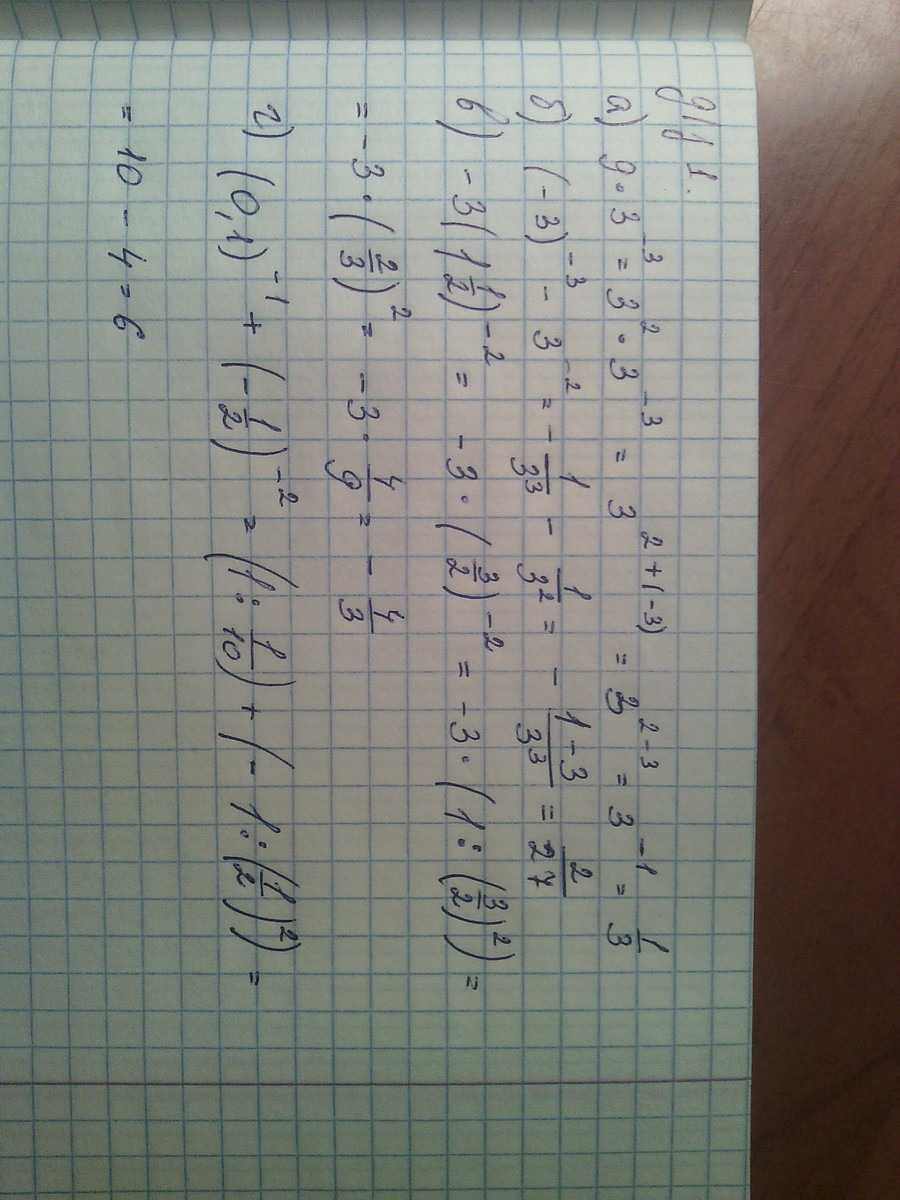 Д/з 1.
а) 9·3⁻³ = 3²·3⁻³ = 3²⁺⁽⁻³⁾ = 3²⁻³ = 3⁻¹ = 1/3
б) (-3)⁻³ - 3⁻² = -1/3³ - 1/3² = - (1-3)/3³ = 2/27
в) -3(1 1/2)⁻² = -3·(3/2)⁻² = -3·(1:(3/2)²) =
= -3·(2/3)² = -3·4/9 = -4/3
г) (0,1)⁻¹ + (-1/2)⁻² = (1:1/10) + (-1:(1/2)²) =
= 10 - 4 = 6